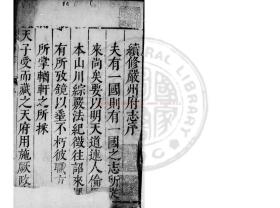 續修嚴州府志序
夫有一國則有一國之志所從
來尚矣要以明天道建人倫
本山川綜嚴法紀徵往詔來
有所攷鏡以垂不朽彼職方
所掌輶軒之所採
天子受而藏之天府用施厥政